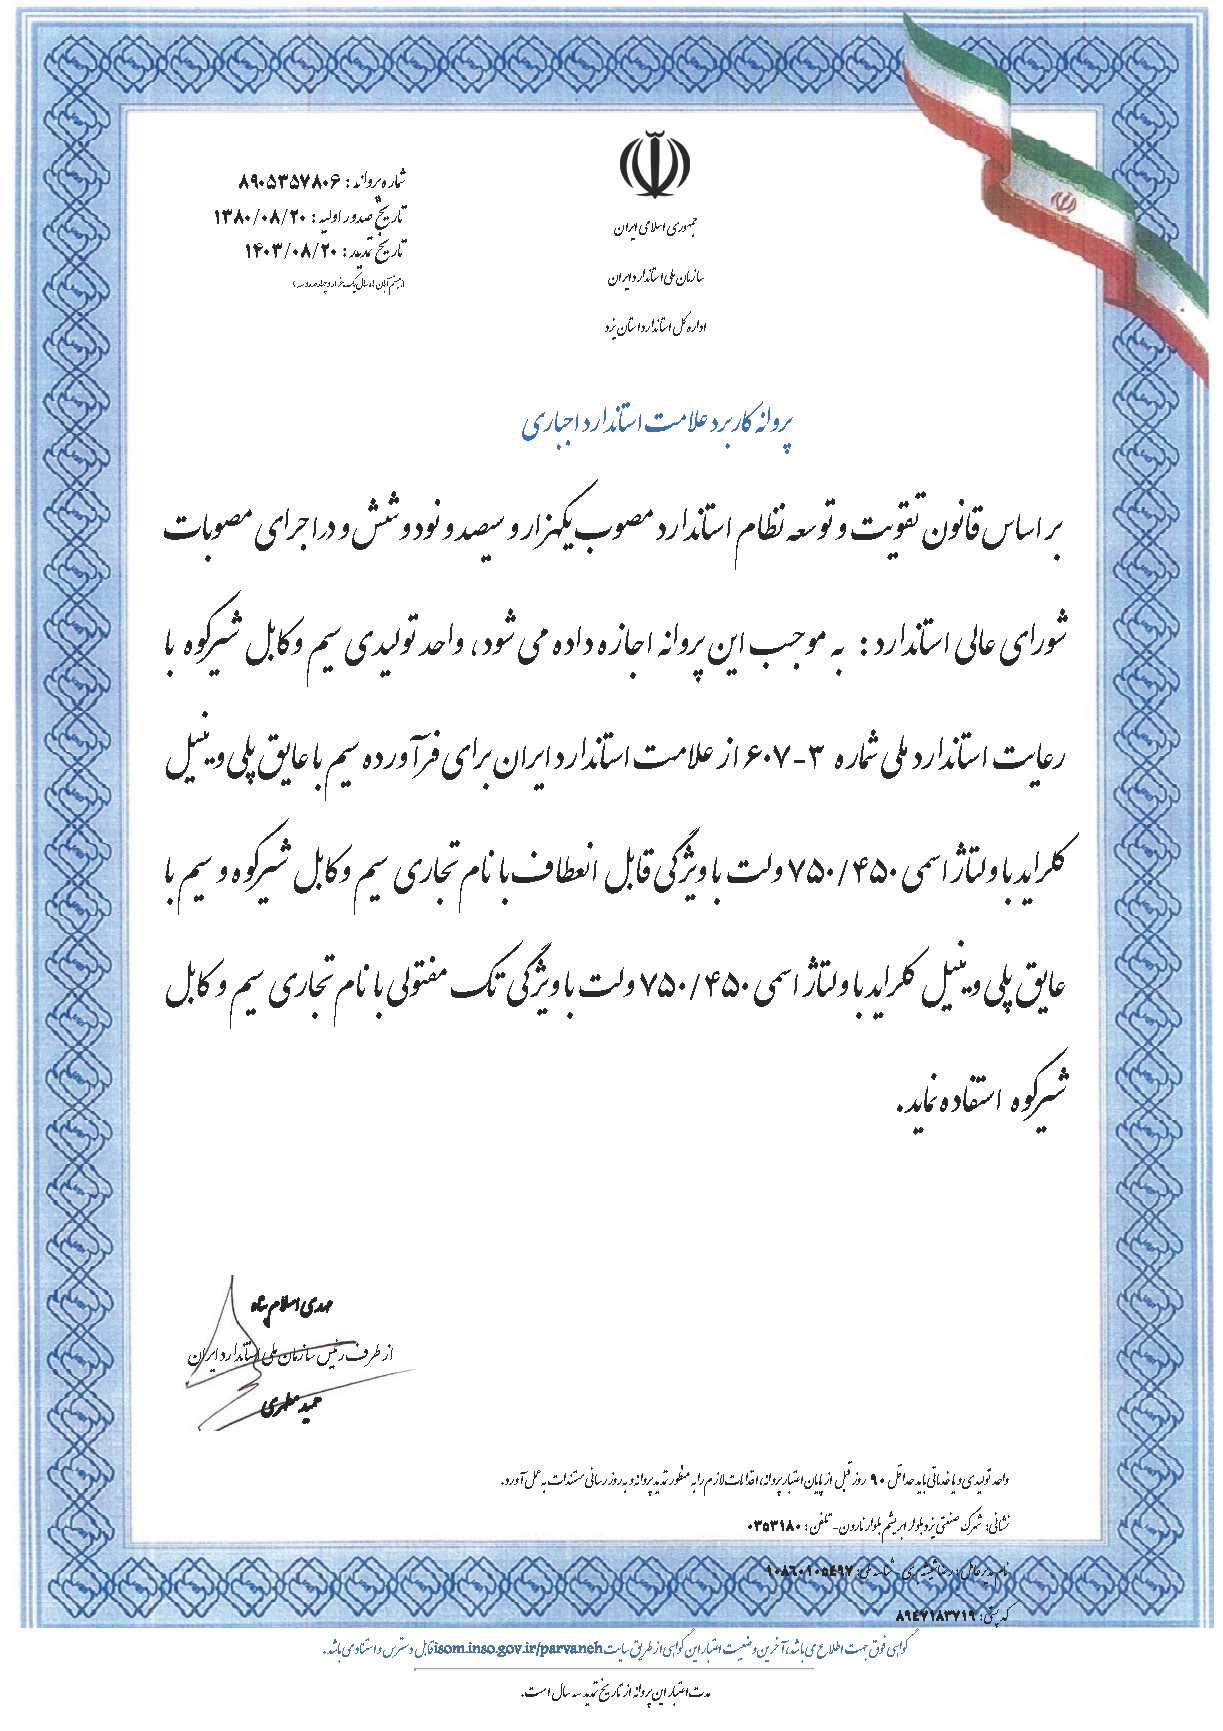 جمهوری اسلامی ایران
سازمان ملی استاندارد ایران
اداره کل استاندارد استان یزد
شماره پروانه : ۸۹۰۵۳۵۷۸۰۶
تاریخ صدور اولیه : ۱۳۸۰/۰۸/۲۰
تاریخ تمدید : ۱۴۰۳/۰۸/۲۰
پروانه کاربرد علامت استاندارد اجباری
بر اساس قانون تقویت و توسعه نظام استاندارد مصوب یکهزار و سیصد و نود و شش و در اجرای مصوبات
شورای عالی استاندارد : به موجب این پروانه اجازه داده می شود، واحد تولیدی سیم و کابل شیرکوه با
رعایت استاندارد ملی شماره ۳-۶۰۷ از علامت استاندارد ایران برای فرآورده سیم با عایق پلی وینیل
کلراید با ولتاژ اسمی ۷۵۰/۴۵۰ ولت با ویژگی قابل انعطاف با نام تجاری سیم و کابل شیرکوه و سیم با
عایق پلی وینیل کلراید با ولتاژ اسمی ۷۵۰/۴۵۰ ولت با ویژگی تک مفتولی با نام تجاری سیم و کابل
شیرکوه استفاده نماید.
مهدی اسلام پناه
از طرف رئیس سازمان ملی استاندارد ایران
حمید مطهری
واحد تولیدی و یا خدماتی باید حداقل ۹۰ روز قبل از پایان اعتبار پروانه، اقدامات لازم را به منظور تمدید پروانه و به روز رسانی مستندات به عمل آورد.
نشانی: شهرک صنعتی یزد بلوار ابریشم بلوار نارون- تلفن : ۰۳۵۳۱۸۰
نام مدیرعامل: رضا شیشه بری - شناسه ملی: ۱۰۸۶۰۱۰۵۴۹۷
کد پستی: ۸۹۴۷۱۸۳۷۱۹
گواهی فوق جهت اطلاع می باشد، آخرین وضعیت اعتبار این گواهی از طریق سایت isom.inso.gov.ir/parvaneh قابل دسترس و استناد می باشد.
مدت اعتبار این پروانه از تاریخ تمدید سه سال است.